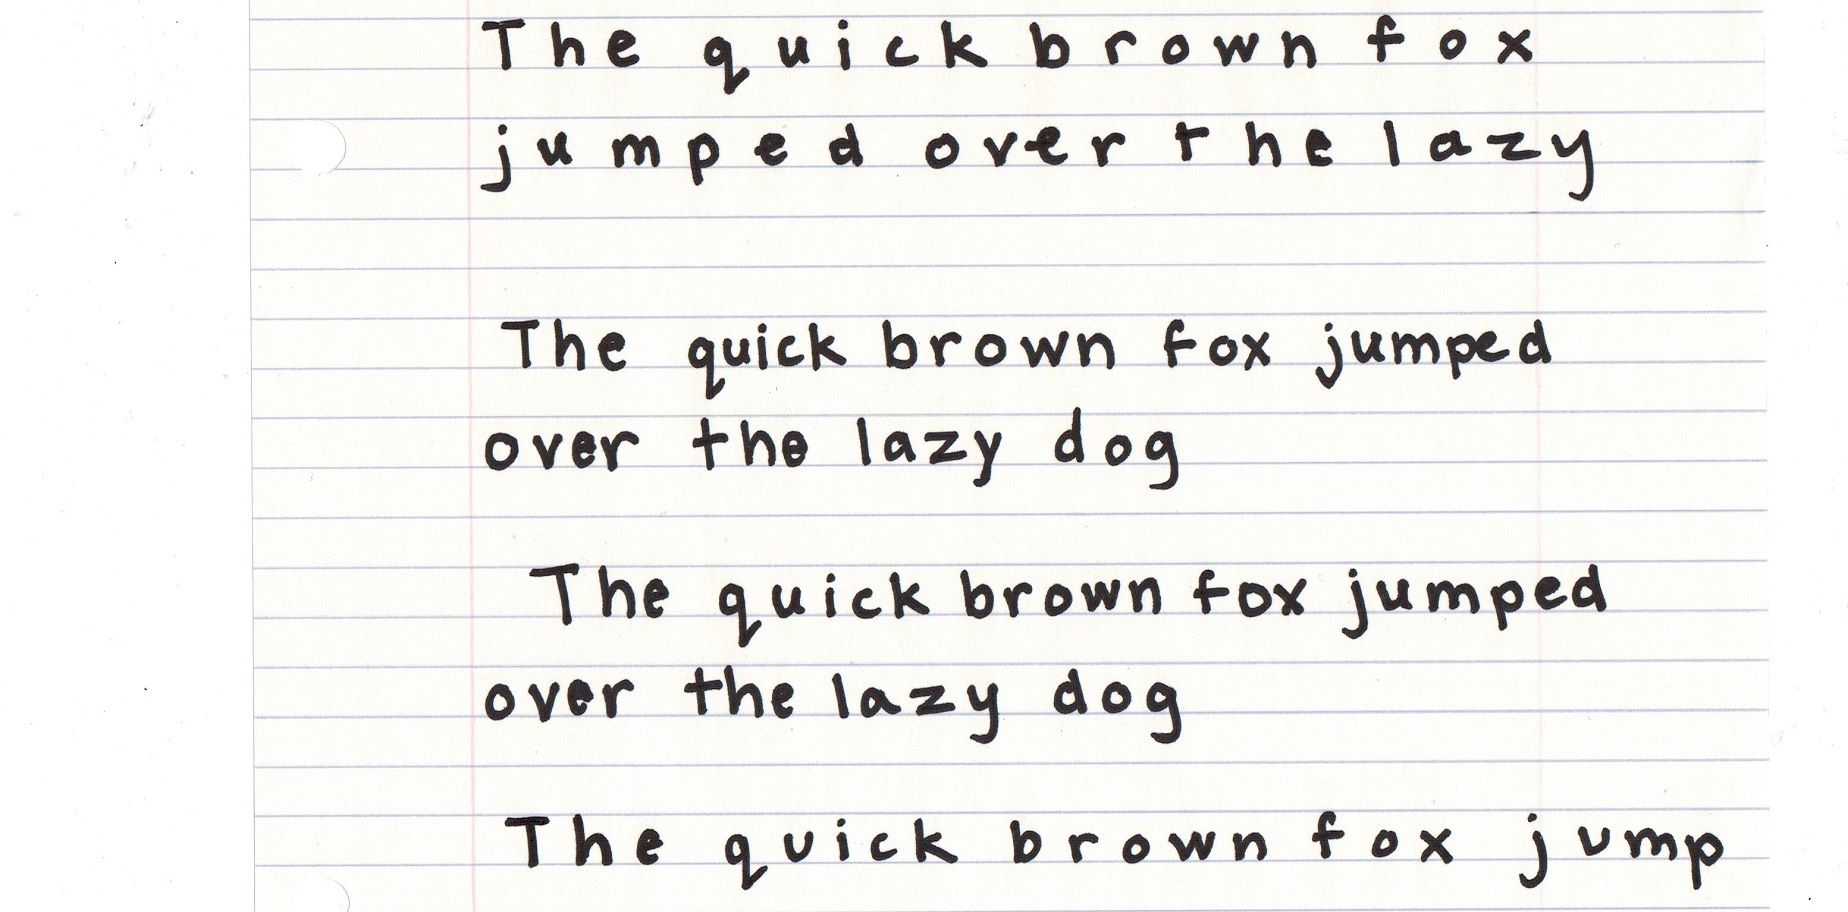 The quick brown fox
jumped over the lazy
The quick brown fox jumped
over the lazy dog
The quick brown fox jumped
over the lazy dog
The quick brown fox jump